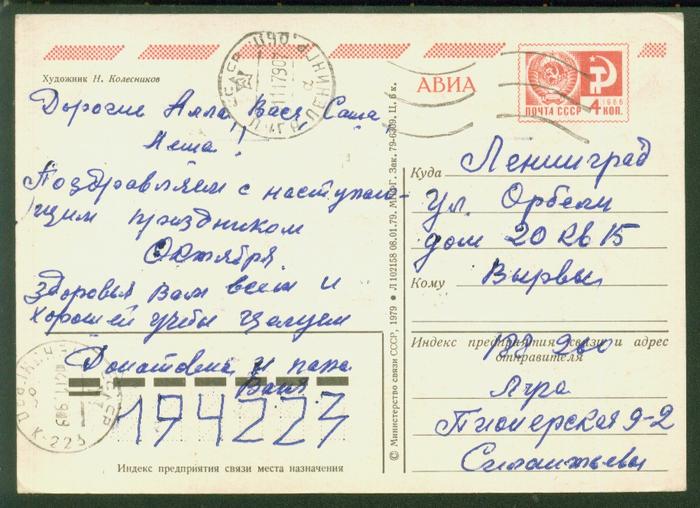 Художник Н. Колесников
АВИА
1966
ПОЧТА СССР 4 КОП.
Дорогие Алла Вася Саша
Леша!
Поздравляем с наступаю-
щим праздником
Октября
Здоровья Вам всем и
хорошей учёбы Целуем
и папа
Ваня
Куда Ленинград
ул. Орбели
дом 20 кв 15
Кому Вырвы
Индекс предприятия связи и адрес отправителя
Луга
Пионерская 9-2
194223
Индекс предприятия связи места назначения
© Министерство связи СССР, 1979 ● Л 102158 08.01.79.
Ц. 6 к.
К-223